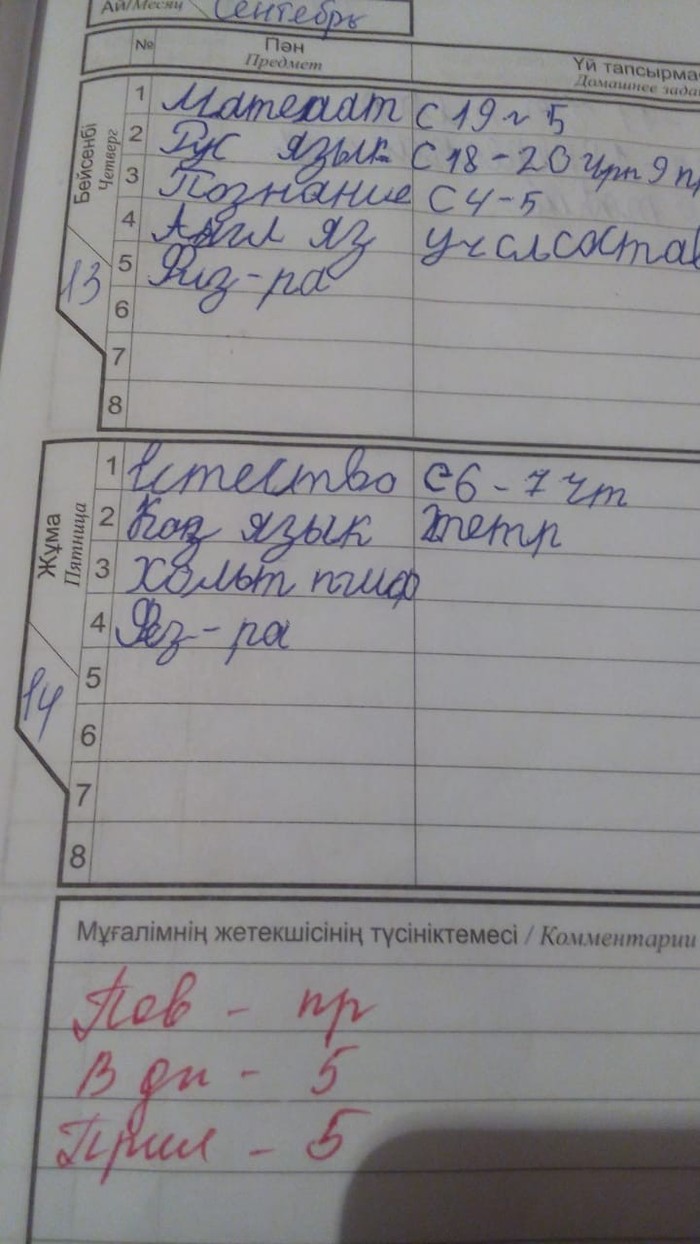 Ай/Месяц Сентебрь
№ Пән Предмет Үй тапсырма Домашнее зада
Бейсенбі Четверг 13
1 Математ С 19 № 5
2 Рус язык С 18-20 упр 9 пр
3 Познание С 4-5
4 Англ яз уч сл состав
5 Физ-ра
6
7
8
Жұма Пятница 14
1 Естество С6-7 чт
2 Каз язык тетр
3
4 Физ-ра
5
6
7
8
Мұғалімнің жетекшісінің түсініктемесі / Комментарии
Пов - пр
В дн - 5
Прил - 5